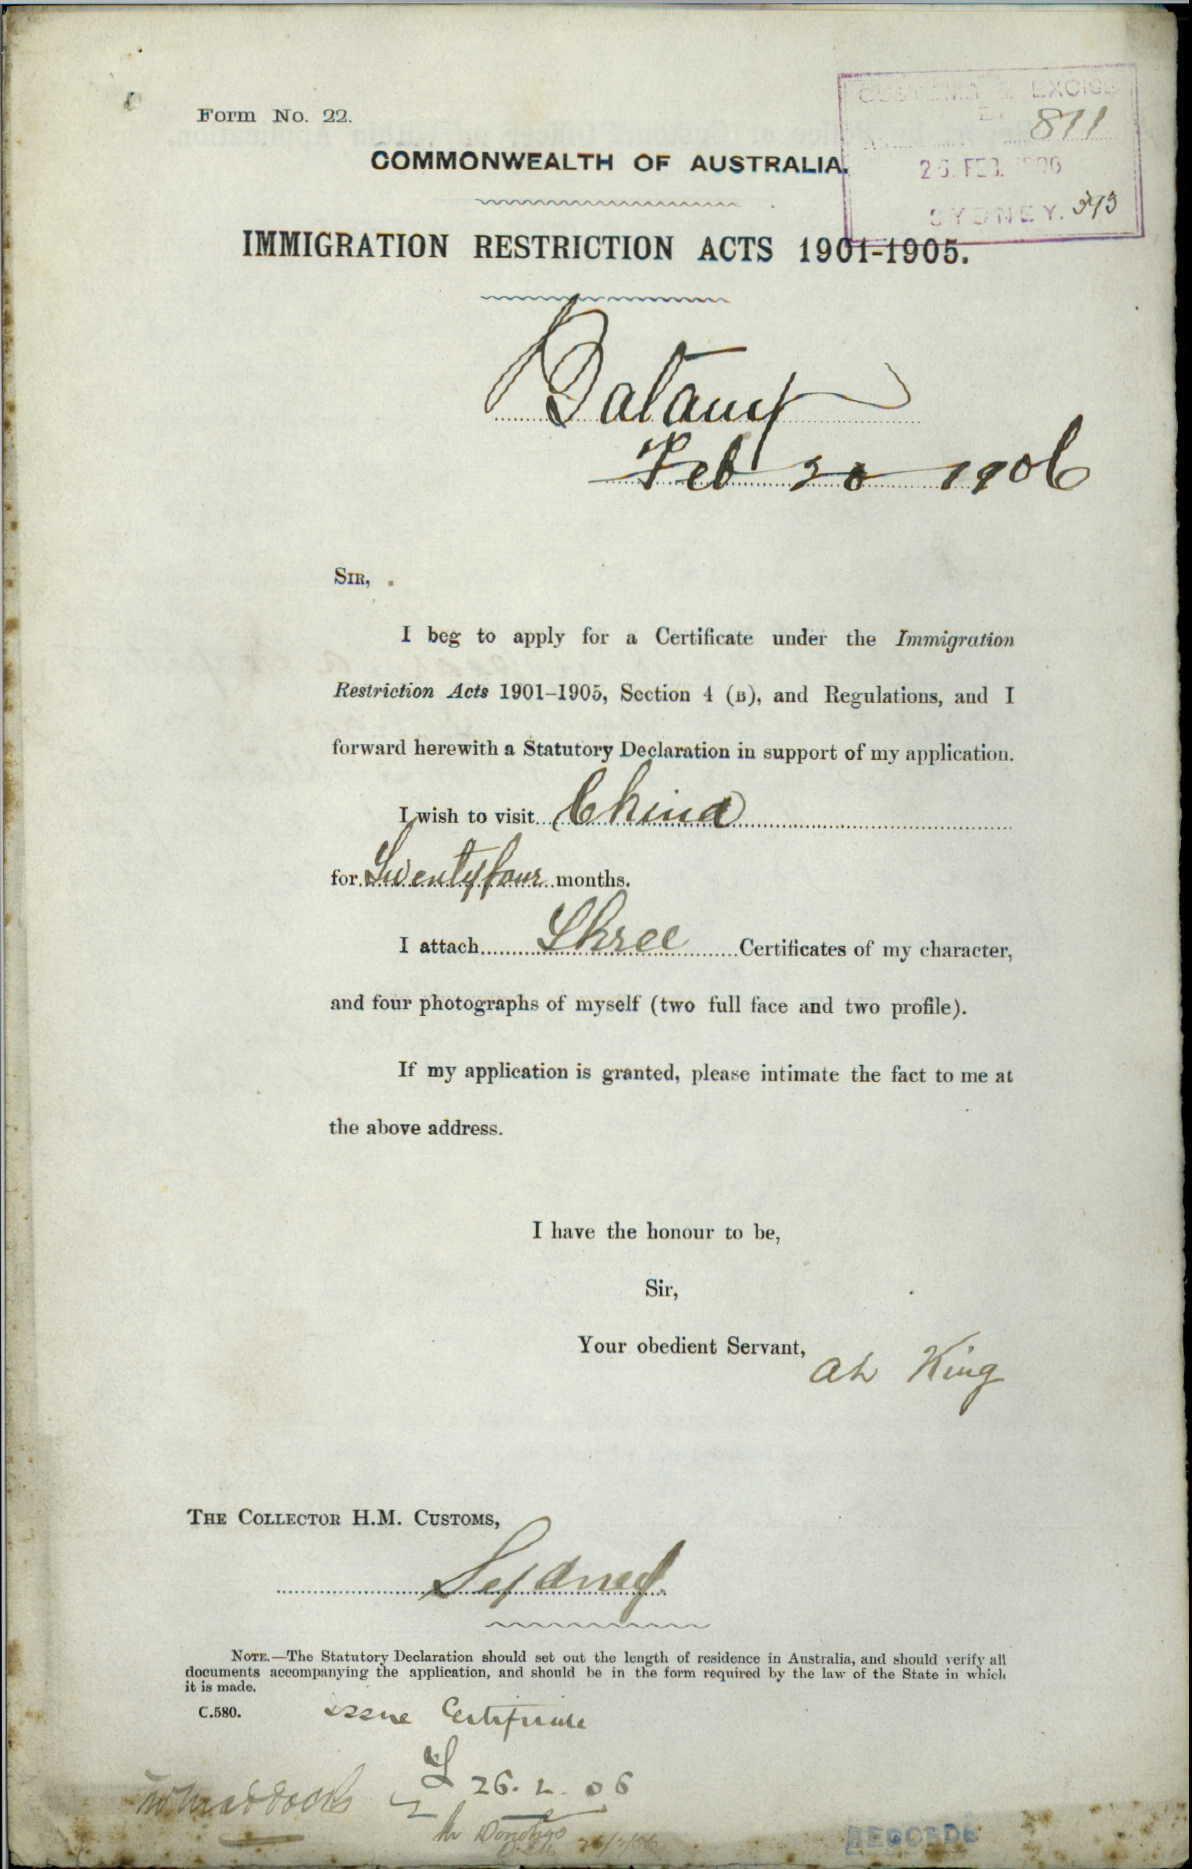 Form No. 22.
CUSTOMS & EXCISE
811
26. FEB. 1906
SYDNEY. 393
COMMONWEALTH OF AUSTRALIA.
IMMIGRATION RESTRICTION ACTS 1901-1905.
Batamy
Feb 20 1906
SIR,
I beg to apply for a Certificate under the Immigration
Restriction Acts 1901-1905, Section 4 (B), and Regulations, and I
forward herewith a Statutory Declaration in support of my application.
I wish to visit China
for Twenty four months.
I attach Three Certificates of my character,
and four photographs of myself (two full face and two profile).
If my application is granted, please intimate the fact to me at
the above address.
I have the honour to be,
Sir,
Your obedient Servant,
Ah King
THE COLLECTOR H.M. CUSTOMS,
Sydney.
NOTE.—The Statutory Declaration should set out the length of residence in Australia, and should verify all
documents accompanying the application, and should be in the form required by the law of the State in which
it is made.
C.580.
issue Certificate
26. 2. 06
Mr Donohoe